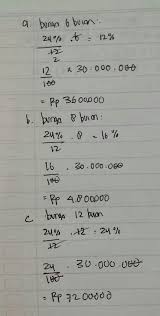 a. bunga 6 bulan :
24% . 6 = 12%
12
2
12 x 30.000.000
100
= Rp 3600000
b. bunga 8 bulan :
24% . 8 = 16%
12
16 . 30.000.000
100
= Rp 4.800000
c bunga 12 bulan
24% . 12 = 24%
12
24 . 30.000.000
100
= Rp 7200000